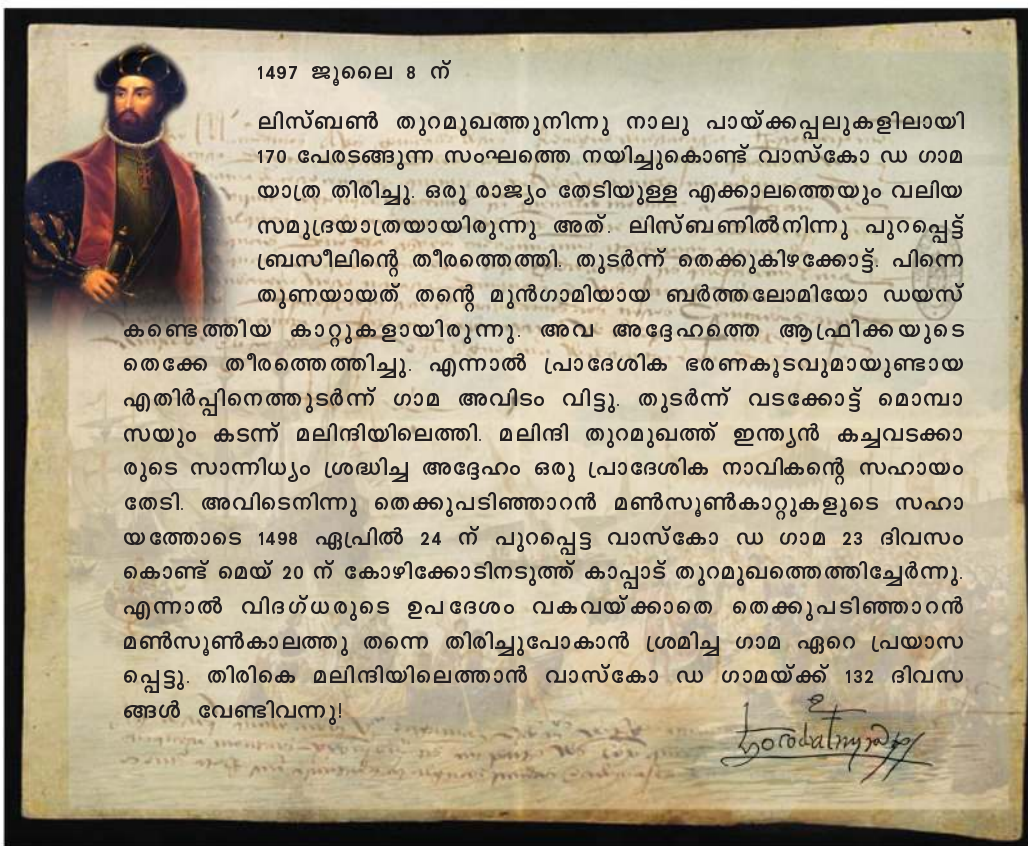 1497 ജൂലൈ 8 ന്
ലിസ്ബൺ തുറമുഖത്തുനിന്നു നാലു പായ്ക്കപ്പലുകളിലായി
170 പേരടങ്ങുന്ന സംഘത്തെ നയിച്ചുകൊണ്ട് വാസ്കോ ഡ ഗാമ
യാത്ര തിരിച്ചു. ഒരു രാജ്യം തേടിയുള്ള എക്കാലത്തെയും വലിയ
സമുദ്രയാത്രയായിരുന്നു അത്. ലിസ്ബണിൽനിന്നു പുറപ്പെട്ട്
ബ്രസീലിന്റെ തീരത്തെത്തി. തുടർന്ന് തെക്കുകിഴക്കോട്ട്. പിന്നെ
തുണയായത് തന്റെ മുൻഗാമിയായ ബർത്തലോമിയോ ഡയസ്
കണ്ടെത്തിയ കാറ്റുകളായിരുന്നു. അവ അദ്ദേഹത്തെ ആഫ്രിക്കയുടെ
തെക്കേ തീരത്തെത്തിച്ചു. എന്നാൽ പ്രാദേശിക ഭരണകൂടവുമായുണ്ടായ
എതിർപ്പിനെത്തുടർന്ന് ഗാമ അവിടം വിട്ടു. തുടർന്ന് വടക്കോട്ട് മൊമ്പാ
സയും കടന്ന് മലിന്ദിയിലെത്തി. മലിന്ദി തുറമുഖത്ത് ഇന്ത്യൻ കച്ചവടക്കാ
രുടെ സാന്നിധ്യം ശ്രദ്ധിച്ച അദ്ദേഹം ഒരു പ്രാദേശിക നാവികന്റെ സഹായം
തേടി. അവിടെനിന്നു തെക്കുപടിഞ്ഞാറൻ മൺസൂൺകാറ്റുകളുടെ സഹാ
യത്തോടെ 1498 ഏപ്രിൽ 24 ന് പുറപ്പെട്ട വാസ്കോ ഡ ഗാമ 23 ദിവസം
കൊണ്ട് മെയ് 20 ന് കോഴിക്കോടിനടുത്ത് കാപ്പാട് തുറമുഖത്തെത്തിച്ചേർന്നു.
എന്നാൽ വിദഗ്ധരുടെ ഉപദേശം വകവയ്ക്കാതെ തെക്കുപടിഞ്ഞാറൻ
മൺസൂൺകാലത്തു തന്നെ തിരിച്ചുപോകാൻ ശ്രമിച്ച ഗാമ ഏറെ പ്രയാസ
പ്പെട്ടു. തിരികെ മലിന്ദിയിലെത്താൻ വാസ്കോ ഡ ഗാമയ്ക്ക് 132 ദിവസ
ങ്ങൾ വേണ്ടിവന്നു!